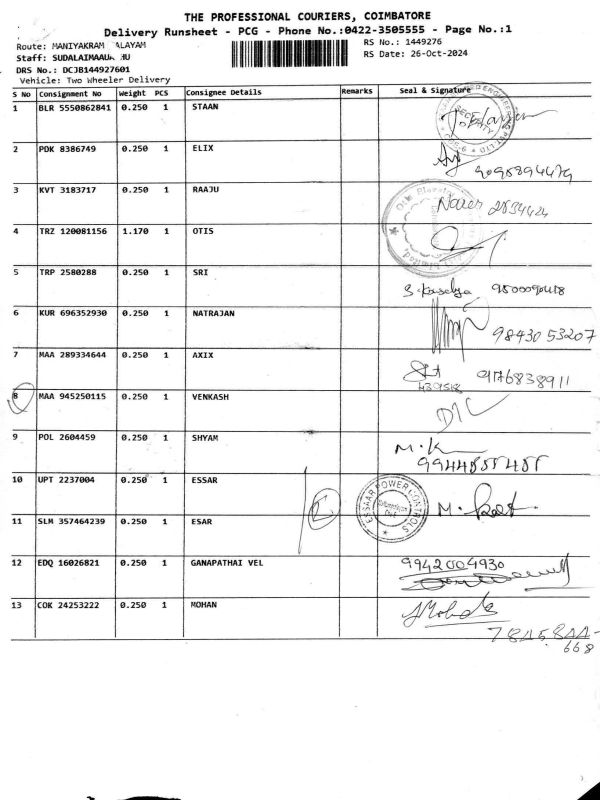 THE PROFESSIONAL COURIERS, COIMBATORE
Delivery Runsheet - PCG - Phone No.:0422-3505555 - Page No.:1
Route: MANIYAKRAM ALAYAM
RS No.: 1449276
Staff:
RS Date: 26-Oct-2024
DRS No.: DCJB144927601
Vehicle: Two Wheeler Delivery
S No Consignment No Weight PCS Consignee Details Remarks Seal & Signature
1 BLR 5550862841 0.250 1 STAAN
2 PDK 8386749 0.250 1 ELIX
3 KVT 3183717 0.250 1 RAAJU
4 TRZ 120081156 1.170 1 OTIS
5 TRP 2580288 0.250 1 SRI
6 KUR 696352930 0.250 1 NATRAJAN 98430 53207
7 MAA 289334644 0.250 1 AXIX 9176838911
8 MAA 945250115 0.250 1 VENKASH
9 POL 2604459 0.250 1 SHYAM M.K
10 UPT 2237004 0.250 1 ESSAR
ESSAR POWER CONTROLS
11 SLM 357464239 0.250 1 ESAR
12 EDQ 16026821 0.250 1 GANAPATHAI VEL 9942004930
13 COK 24253222 0.250 1 MOHAN